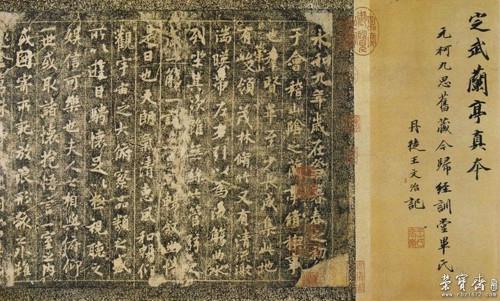 定武蘭亭真本
元柯九思舊藏今歸經訓堂畢氏
丹徒王文治記
永和九年歲在癸丑暮春之初
于會稽山陰之蘭亭脩稧事
也羣賢畢至少長咸集此地
有峻領茂林脩竹又有清流激
湍暎帶左右引以為流觴曲水
列坐其次雖無絲竹管弦之
盛一觴一詠亦足以暢叙幽情
是日也天朗氣清惠風和暢仰
觀宇宙之大俯察品類之盛
所以遊目騁懷足以極視聽之
娛信可樂也夫人之相與俯仰
一世或取諸懷抱悟言一室之內
或因寄所託放浪形骸之外雖
榮寶齋